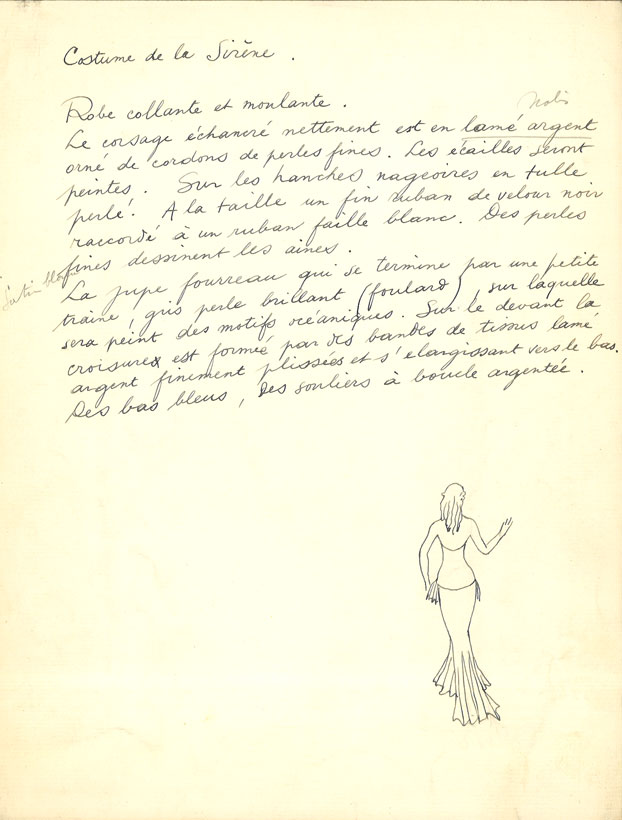 Costume de la Sirène .
Robe collante et moulante .
Le corsage échancré nettement est en lamé argent
orné de cordons de perles fines . Les écailles seront
peintes . Sur les hanches nageoires en tulle
perlé . A la taille un fin ruban de velour noir
raccordé à un ruban faille blanc . Des perles
fines dessinent les aines .
Satin
La jupe fourreau qui se termine par une petite
traine , gris perle brillant (foulard) , sur laquelle
sera peint des motifs océaniques . Sur le devant la
croisure est formée par des bandes de tissus lamé
argent finement plissées et s'elargissant vers le bas.
Des bas bleus , des souliers à boucle argentée .